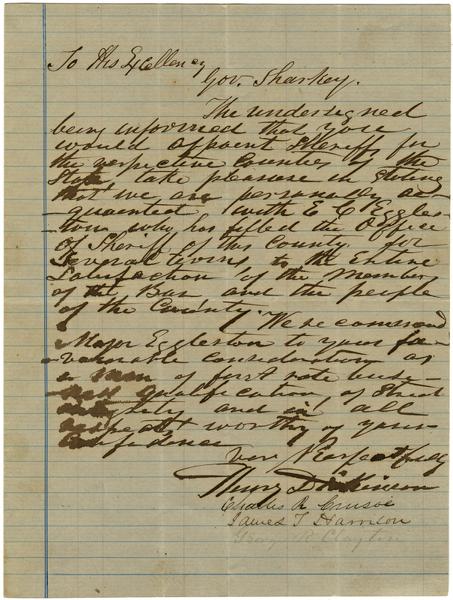 To His Excellency
Gov. Sharkey.
The undersigned
being informed that you
would appoint Sheriffs for
the respective Counties of the
State take pleasure in stating
that we are personally ac-
-quainted with E C Eggles-
-ton who has filled the Office
of Sheriff of this County for
Several terms to the Entire
Satisfaction of the Members
of the Bar and the people
of the County. We recommend
Major Eggleston to your fa-
-vourable consideration as
a man of first rate busi-
-ness qualification, of Strict
integrity and in all
respects worthy of your
Confidence
Very Respectfully
Henry Dickinson
Charles R Crusoe
James T Harrison
Geory R Clayton